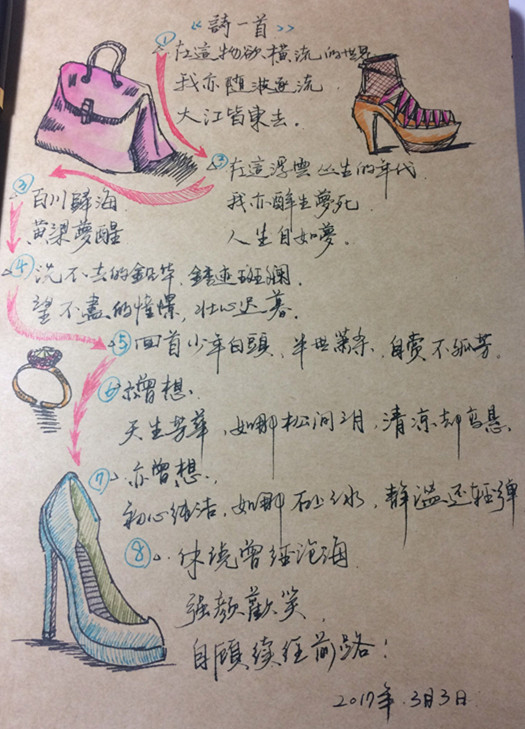 《詩一首》
① 在這物欲橫流的世界
我亦随波逐流
大江皆東去。
② 在這浮雲丛生的年代
我亦醉生夢死
人生自如夢。
③ 百川歸海
黄粱夢醒
④ 洗不去的鉛华,錆迹斑斕
望不盡的憧憬,壮心迟暮。
⑤ 回首少年白頭,半世萧条,自赏不孤芳。
⑥ 亦曾想,
天生芳華,如那松间之月,清凉却高悬
⑦ 亦曾想,
初心纯洁,如那石上之水,静溢还轻弹
⑧ 休说曾经沧海
强颜歡笑,
自顾续经前路!
2017年.3月3日.